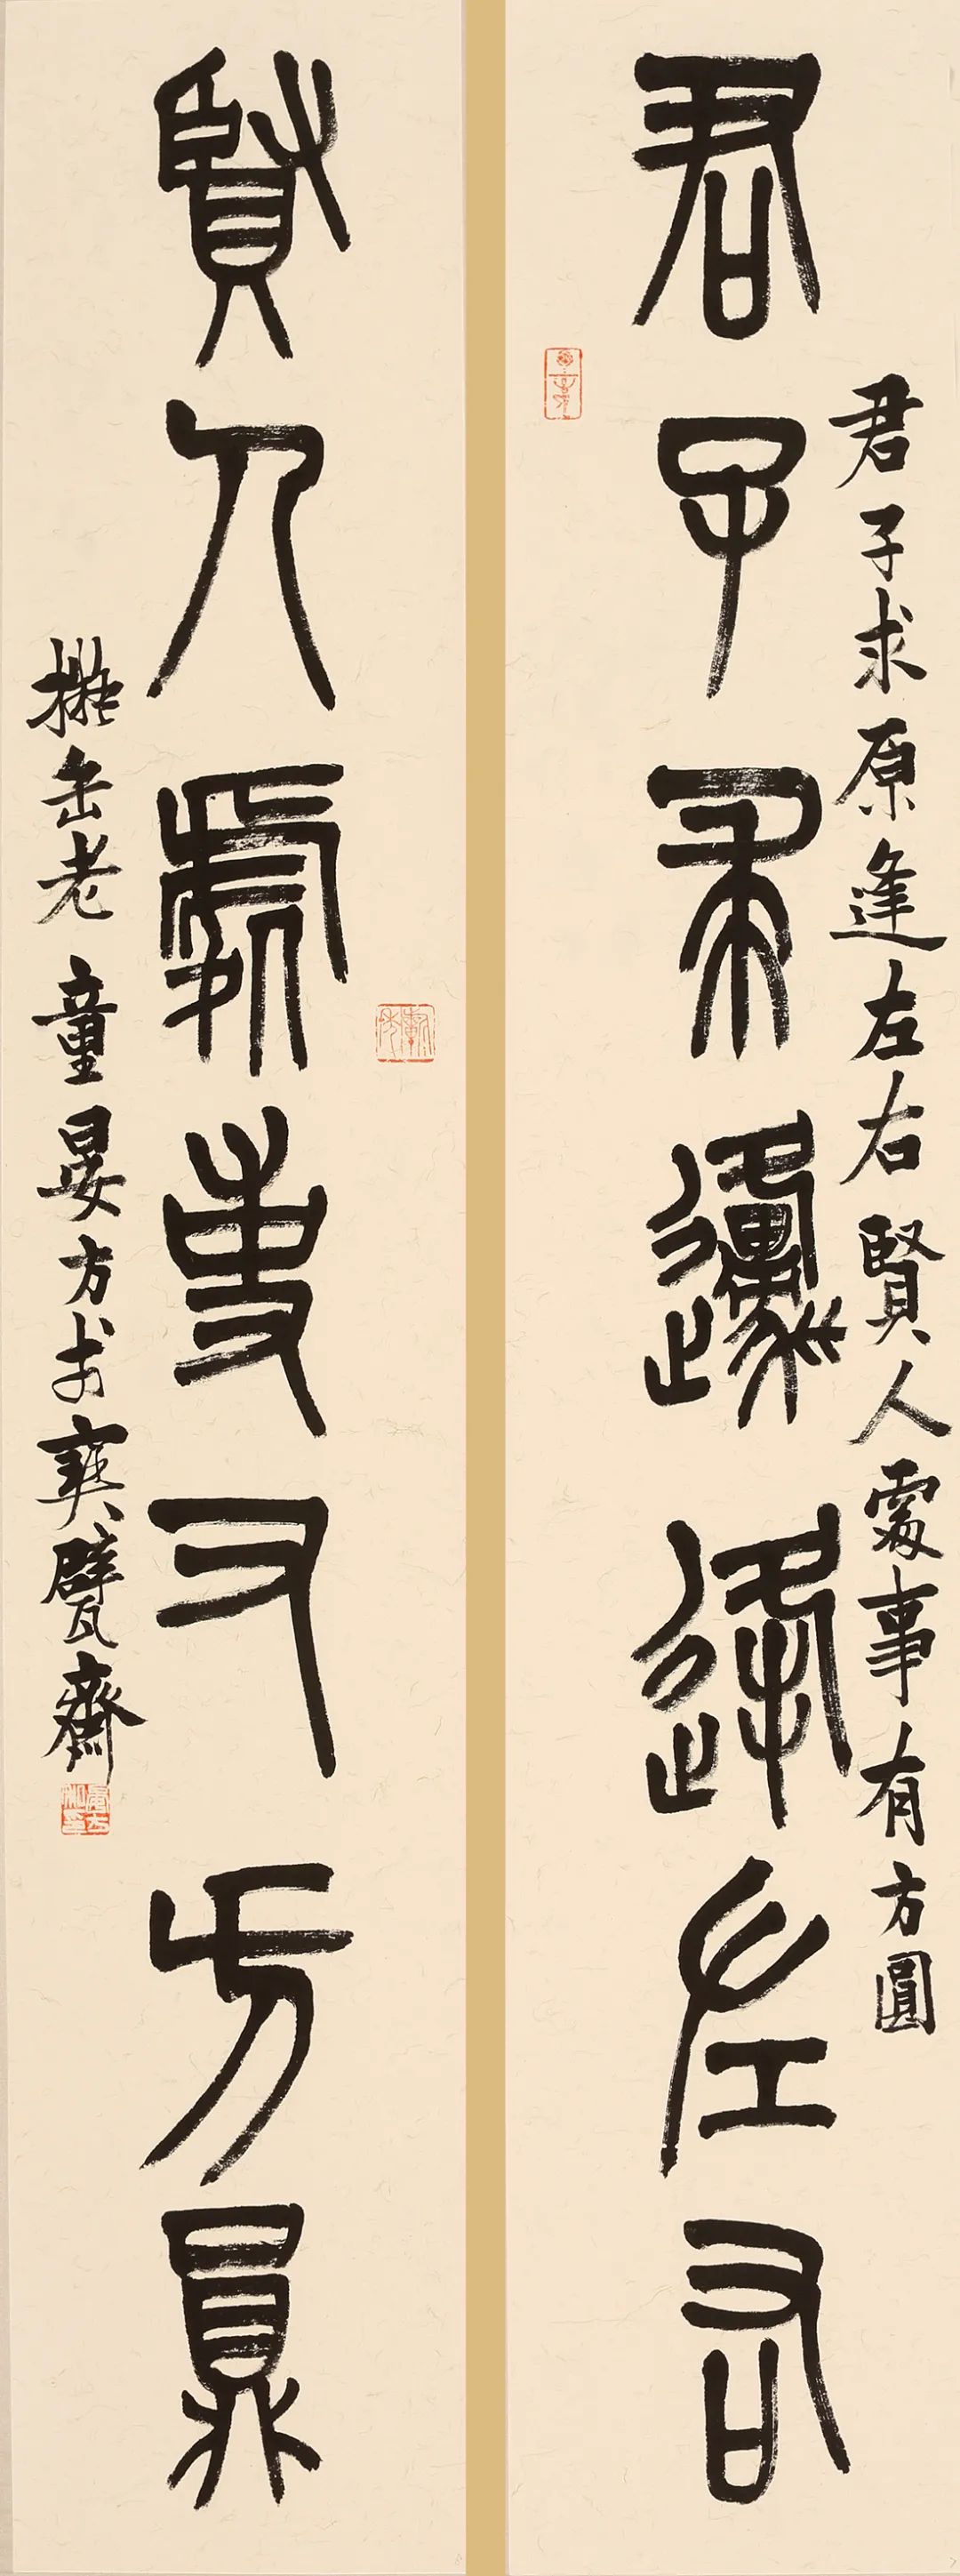 君子求原逢左右
君子求原逢左右賢人處事有方圓
賢人處事又方員
擬缶老 童晏方書爽甓齋